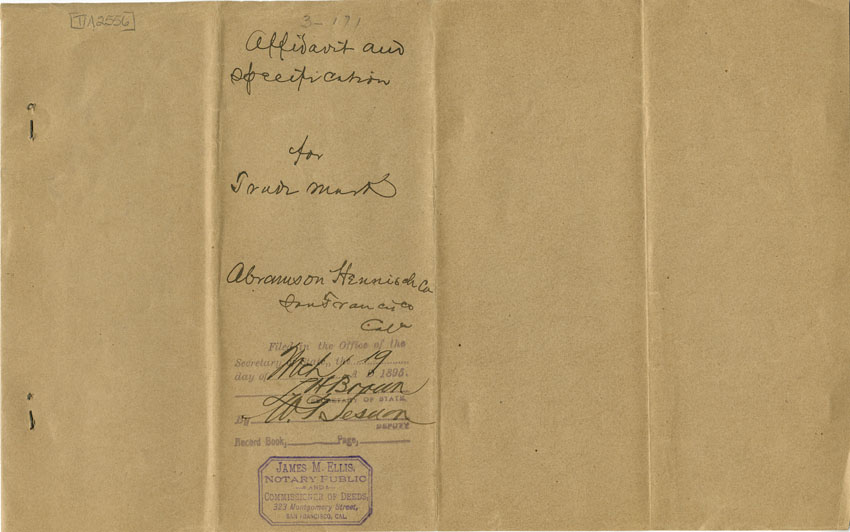 TM2556
3-171
Affidavit and
specification
for
Trade mark
Abramson Hennisch Co
San Francisco
Cala
Filed in the Office of the
Secretary of State, the 19
day of Mch A D 1895.
H Brown
SECRETARY OF STATE
By W. T. Sesnon
DEPUTY
Record Book, Page,
JAMES M. ELLIS,
NOTARY PUBLIC
AND
COMMISSIONER OF DEEDS,
323 Montgomery Street,
SAN FRANCISCO, CAL.